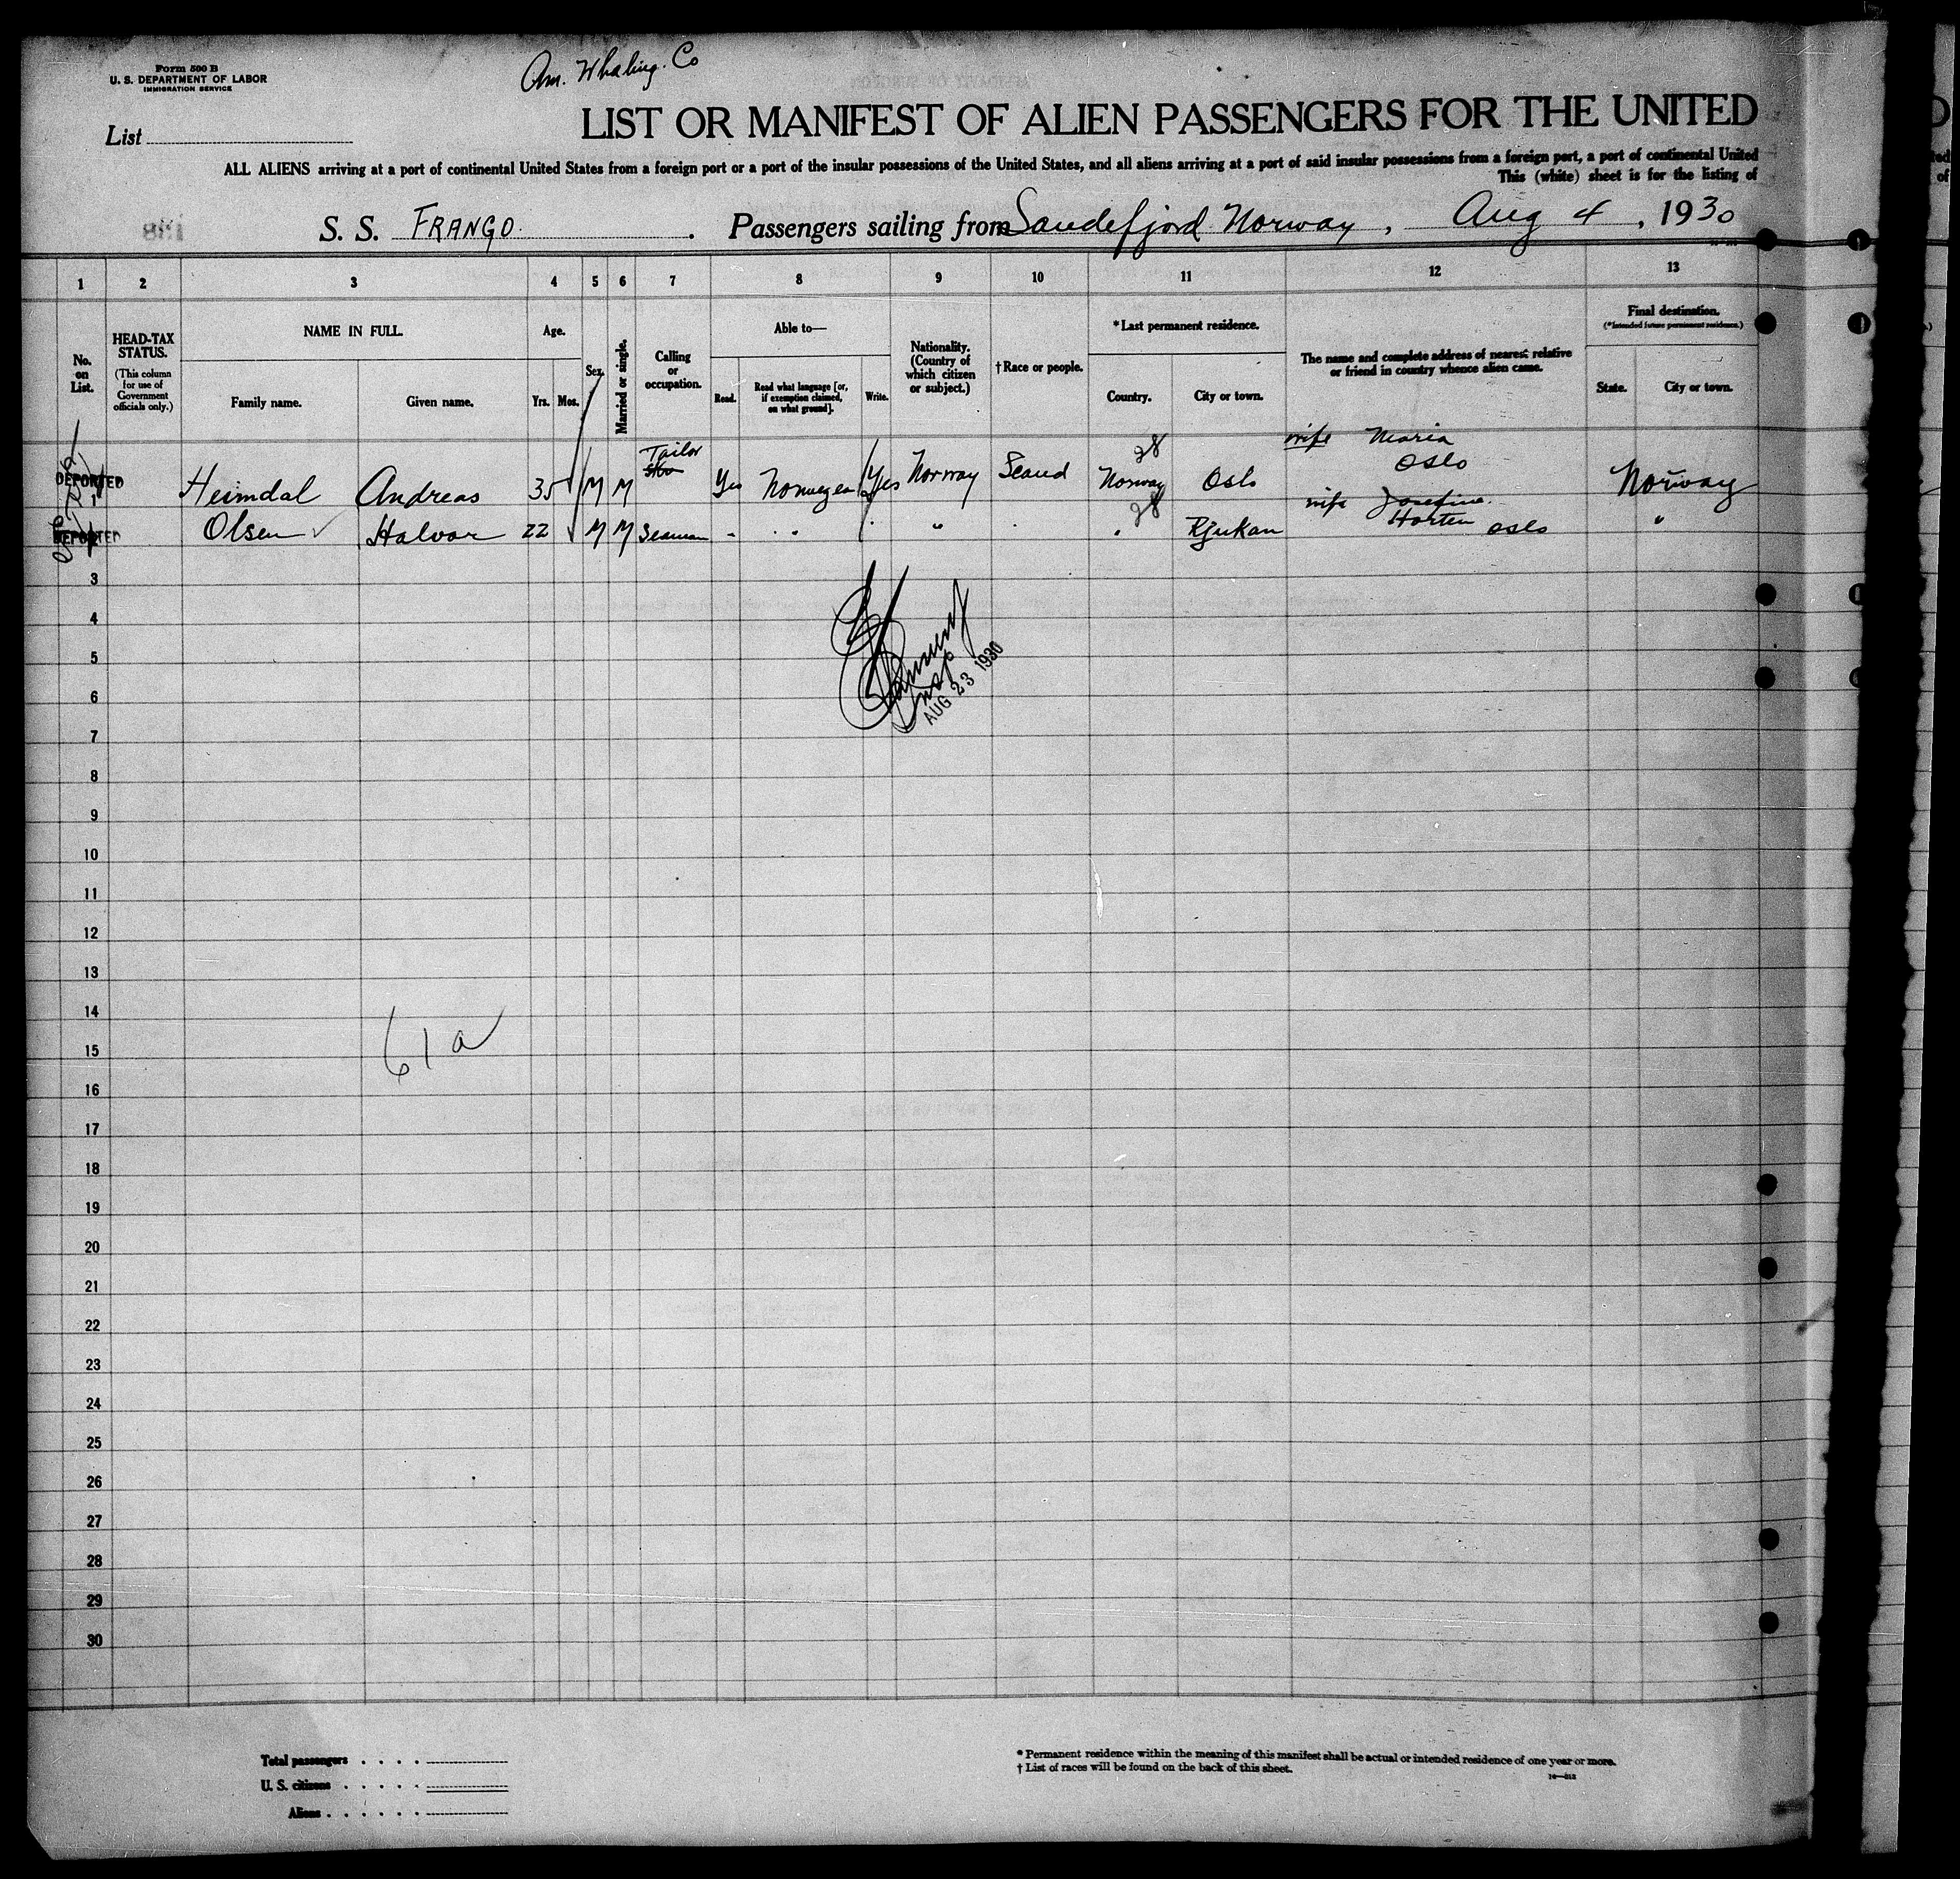 Form 500 B
U. S. DEPARTMENT OF LABOR
IMMIGRATION SERVICE
Am. Whaling. Co
List
LIST OR MANIFEST OF ALIEN PASSENGERS FOR THE UNITED
ALL ALIENS arriving at a port of continental United States from a foreign port or a port of the insular possessions of the United States, and all aliens arriving at a port of said insular possessions from a foreign port, a port of continental United
This (white) sheet is for the listing of
S. S. FRANGO. Passengers sailing from Sandefjord Norway, Aug 4, 1930
1 2 3 4 5 6 7 8 9 10 11 12 13
No. on List.
HEAD-TAX STATUS.
(This column for use of Government officials only.)
NAME IN FULL.
Family name. Given name.
Age.
Yrs. Mos.
Sex.
Married or single.
Calling or occupation.
Able to—
Read. Read what language [or, if exemption claimed, on what ground]. Write.
Nationality. (Country of which citizen or subject.)
†Race or people.
*Last permanent residence.
Country. City or town.
The name and complete address of nearest relative or friend in country whence alien came.
Final destination.
(*Intended future permanent residence.)
State. City or town.
DEPORTED 1 Heimdal Andreas 35 M M Tailor Yes Norwegen Yes Norway Scand 28 Norway Oslo wife Maria Oslo Norway
DEPORTED Olsen Halvor 22 M M Seaman " " " " 28 " Rjukan wife Josefine Horten Oslo "
Insp
AUG 23 1930
3
4
5
6
7
8
9
10
11
12
13
14
61a
15
16
17
18
19
20
21
22
23
24
25
26
27
28
29
30
Total passengers
U. S. citizens
Aliens
* Permanent residence within the meaning of this manifest shall be actual or intended residence of one year or more.
† List of races will be found on the back of this sheet.